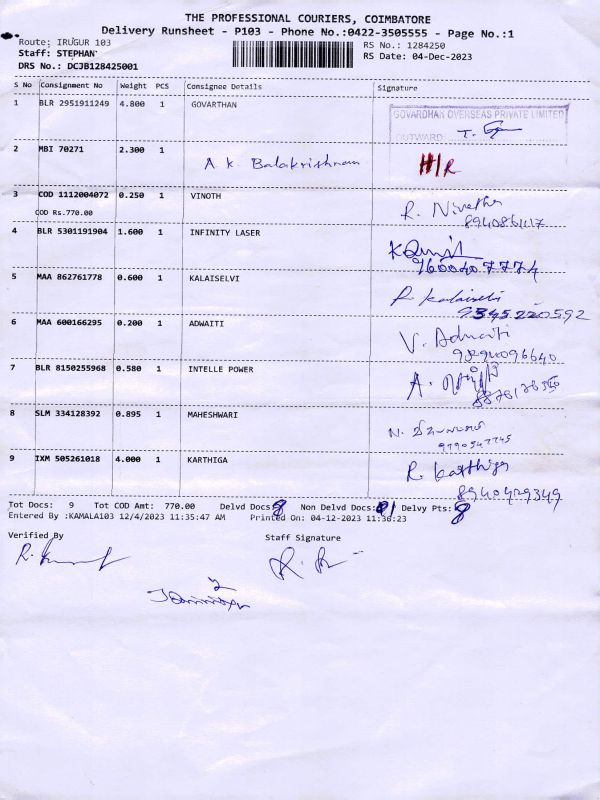 THE PROFESSIONAL COURIERS, COIMBATORE
Delivery Runsheet - P103 - Phone No.:0422-3505555 - Page No.:1
Route: IRUGUR 103
RS No.: 1284250
Staff: STEPHAN
RS Date: 04-Dec-2023
DRS No.: DCJB128425001
S No Consignment No Weight PCS Consignee Details Signature
1 BLR 2951911249 4.800 1 GOVARTHAN
GOVARDHAN OVERSEAS PRIVATE LIMITED
OUTWARD
2 MBI 70271 2.300 1 A.K. Balakrishnan H/R
3 COD 1112004072 0.250 1 VINOTH R. Nivetha
COD Rs.770.00
4 BLR 5301191904 1.600 1 INFINITY LASER
9600407774
5 MAA 862761778 0.600 1 KALAISELVI R. Kalaiselvi
9345220592
6 MAA 600166295 0.200 1 ADWAITI V. Adwaiti
9894096640
7 BLR 8150255968 0.580 1 INTELLE POWER
8 SLM 334128392 0.895 1 MAHESHWARI
9790547745
9 IXM 505261018 4.000 1 KARTHIGA R. Karthiga
8940429349
Tot Docs: 9 Tot COD Amt: 770.00 Delvd Docs: 8 Non Delvd Docs: 1 Delvy Pts: 8
Entered By :KAMALA103 12/4/2023 11:35:47 AM Printed On: 04-12-2023 11:36:23
Verified By Staff Signature